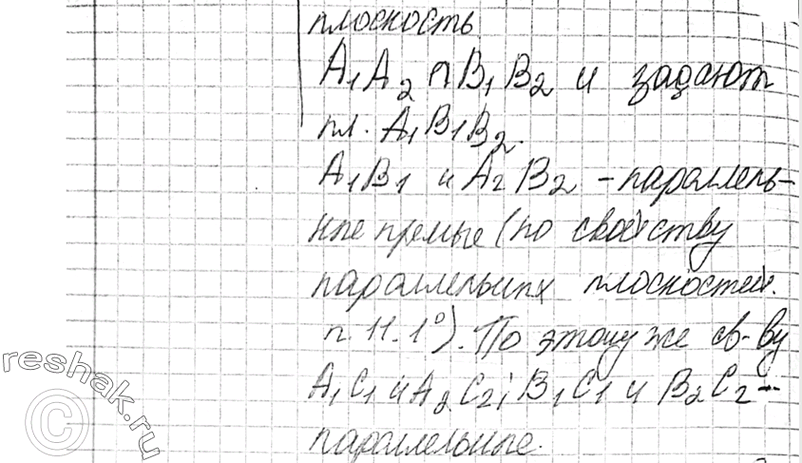 плоскость
A₁A₂ ∩ B₁B₂ и задают
пл. A₁B₁B₂.
A₁B₁ и A₂B₂ – параллель-
ные прямые (по свойству
параллельных плоскостей.
п. 11. 1°). По этому же св-ву
A₁C₁ и A₂C₂; B₁C₁ и B₂C₂ –
параллельные.
© reshak.ru